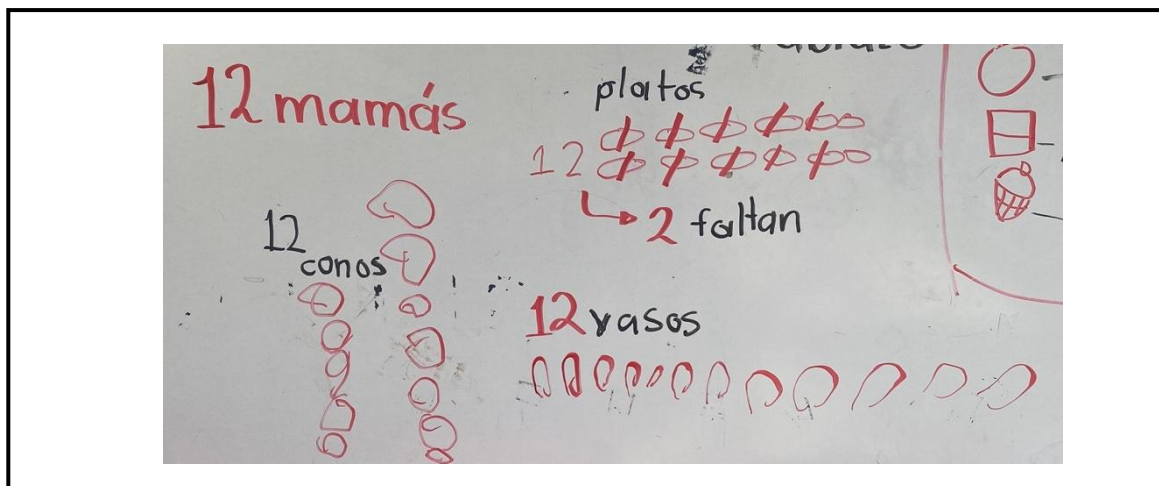 12 mamás
platos
12
2 faltan
12
conos
12 vasos